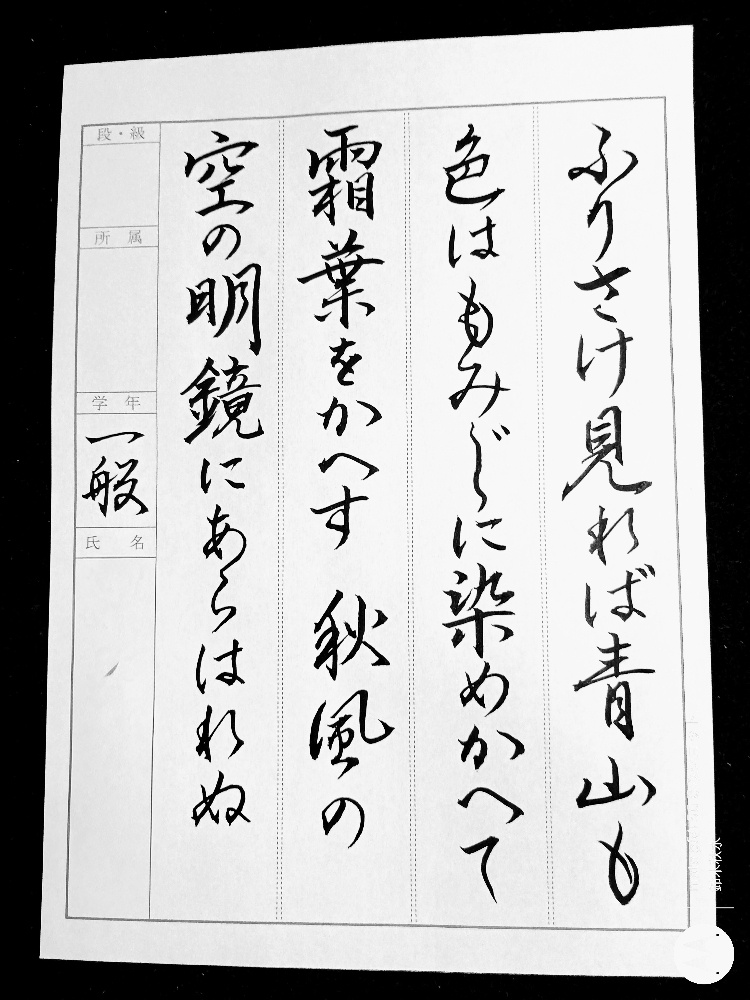 ふりさけ見れば青山も
色はもみぢに染めかへて
霜葉をかへす 秋風の
空の明鏡にあらはれぬ
段・級
所属
学年
一般
氏名